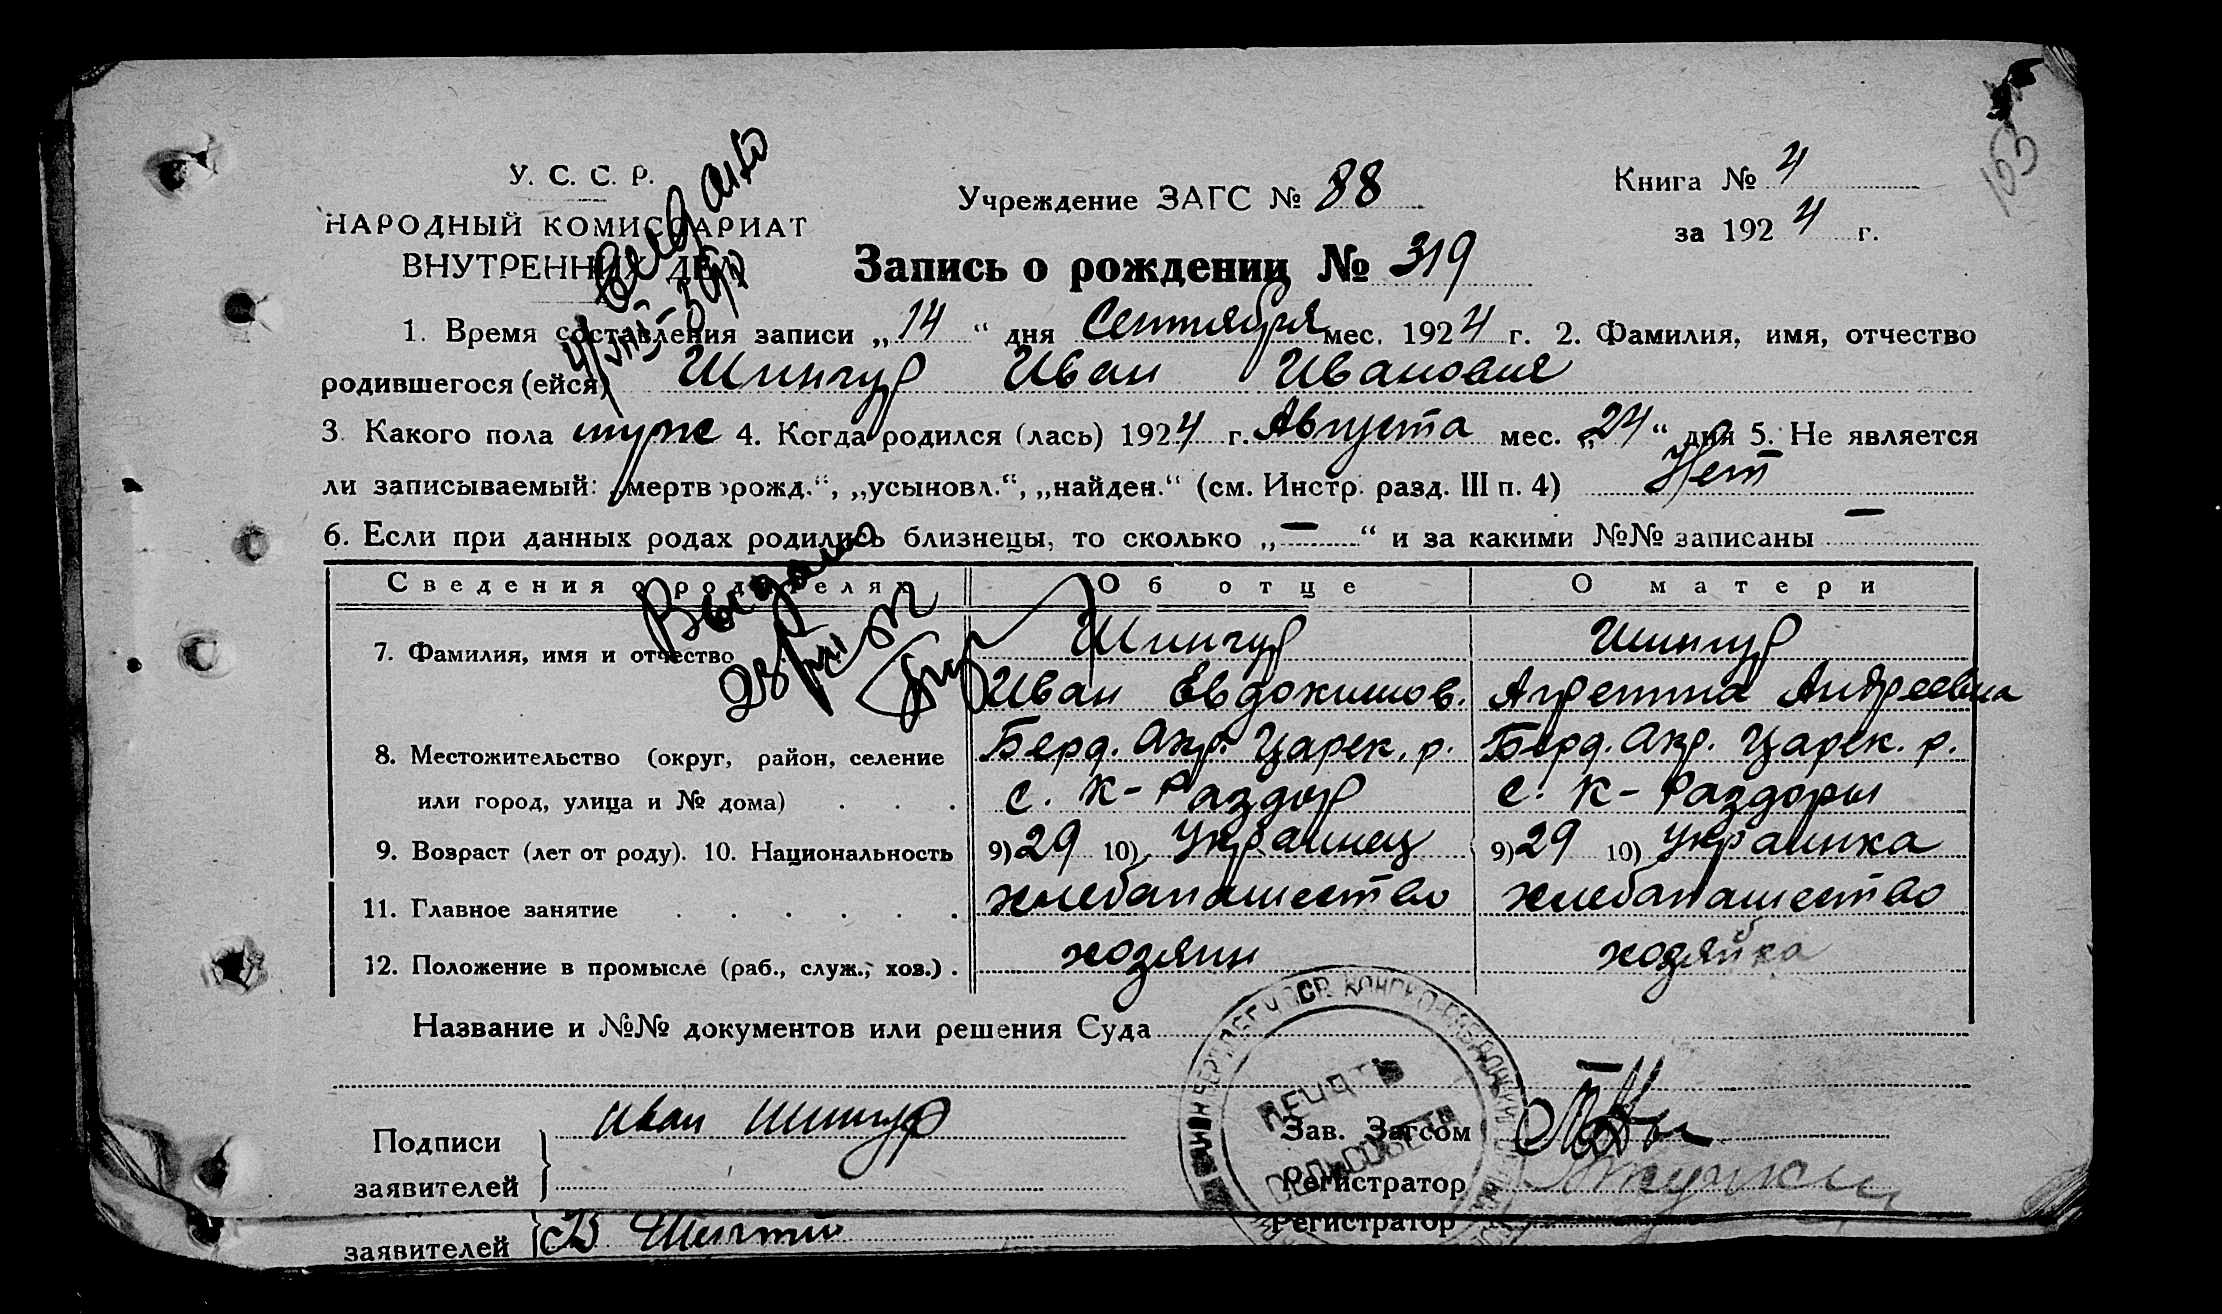 У. С. С. Р.
НАРОДНЫЙ КОМИССАРИАТ
ВНУТРЕННИХ ДЕЛ
Учреждение ЗАГС № 88
Книга № 4
за 1924 г.
103
Запись о рождении № 319
1. Время составления записи „14“ дня Сентября мес. 1924 г. 2. Фамилия, имя, отчество
родившегося (ейся) Шингур Иван Иванович
3. Какого пола муж 4. Когда родился (лась) 1924 г. Августа мес. „24“ дня 5. Не является
ли записываемый: „мертворожд.“, „усыновл.“, „найден.“ (см. Инстр. разд. III п. 4) Нет
6. Если при данных родах родились близнецы, то сколько „—“ и за какими №№ записаны —
Сведения о родителях Об отце О матери
Выдано
28
7. Фамилия, имя и отчество Шингур Шингур
Иван Евдокимов. Агрепина Андреевна
8. Местожительство (округ, район, селение Берд. Окр. Царек. р. Берд. Окр. Царек. р.
или город, улица и № дома) с. К-Раздор с. К-Раздоры
9. Возраст (лет от роду). 10. Национальность 9) 29 10) Украинец 9) 29 10) Украинка
11. Главное занятие хлебопашество хлебопашество
12. Положение в промысле (раб., служ., хоз.) хозяин хозяйка
Название и №№ документов или решения Суда
ПЕЧАТЬ
СЕЛЬСОВЕТА
Подписи
заявителей
Иван Шингур
Зав. Загсом
Регистратор
Регистратор
заявителей